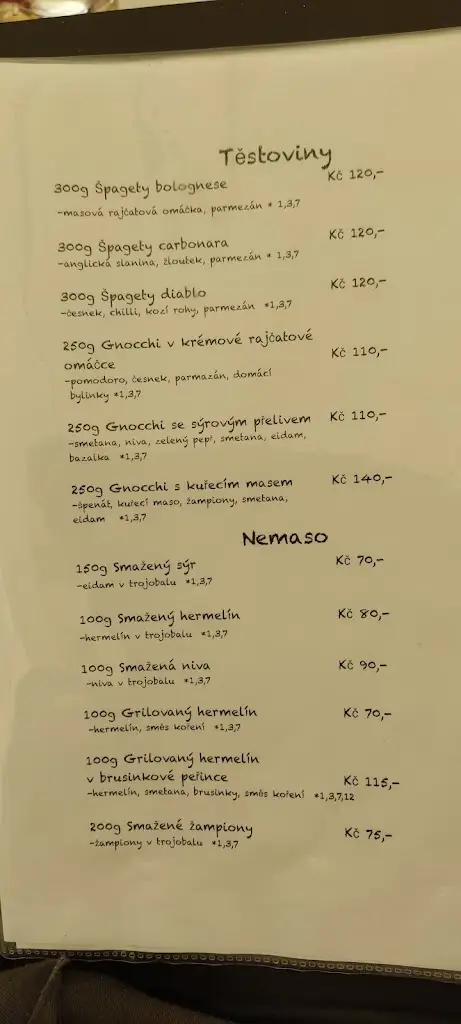 Těstoviny
300g Špagety bolognese Kč 120,-
-masová rajčatová omáčka, parmezán * 1,3,7
300g Špagety carbonara Kč 120,-
-anglická slanina, žloutek, parmezán * 1,3,7
300g Špagety diablo Kč 120,-
-česnek, chilli, kozí rohy, parmezán *1,3,7
250g Gnocchi v krémové rajčatové
omáčce Kč 110,-
-pomodoro, česnek, parmazán, domácí
bylinky *1,3,7
250g Gnocchi se sýrovým přelivem Kč 110,-
-smetana, niva, zelený pepř, smetana, eidam,
bazalka *1,3,7
250g Gnocchi s kuřecím masem Kč 140,-
-špenát, kuřecí maso, žampiony, smetana,
eidam *1,3,7
Nemaso
150g Smažený sýr Kč 70,-
-eidam v trojobalu *1,3,7
100g Smažený hermelín Kč 80,-
-hermelín v trojobalu *1,3,7
100g Smažená niva Kč 90,-
-niva v trojobalu *1,3,7
100g Grilovaný hermelín Kč 70,-
-hermelín, směs koření *1,3,7
100g Grilovaný hermelín
v brusinkové peřince Kč 115,-
-hermelín, smetana, brusinky, směs koření *1,3,7,12
200g Smažené žampiony Kč 75,-
-žampiony v trojobalu *1,3,7